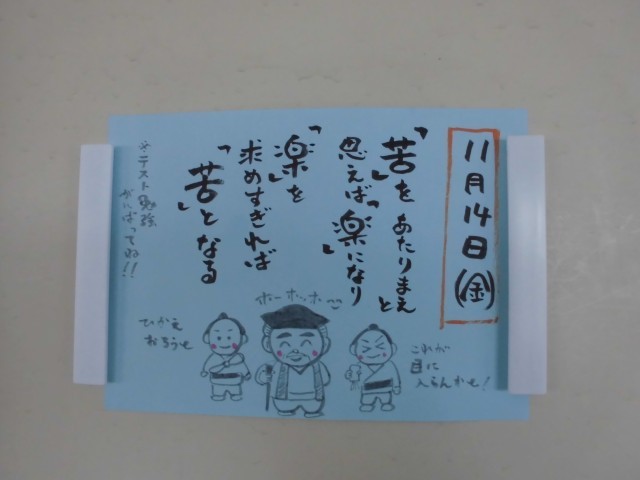 11月14日(金)
「苦」をあたりまえと
思えば「楽」になり
「楽」を
求めすぎれば
「苦」となる
※テスト勉強
がんばってね!!
ホーホッホ
ひかえ
おろうせ
これが
目に
入らんかせ!